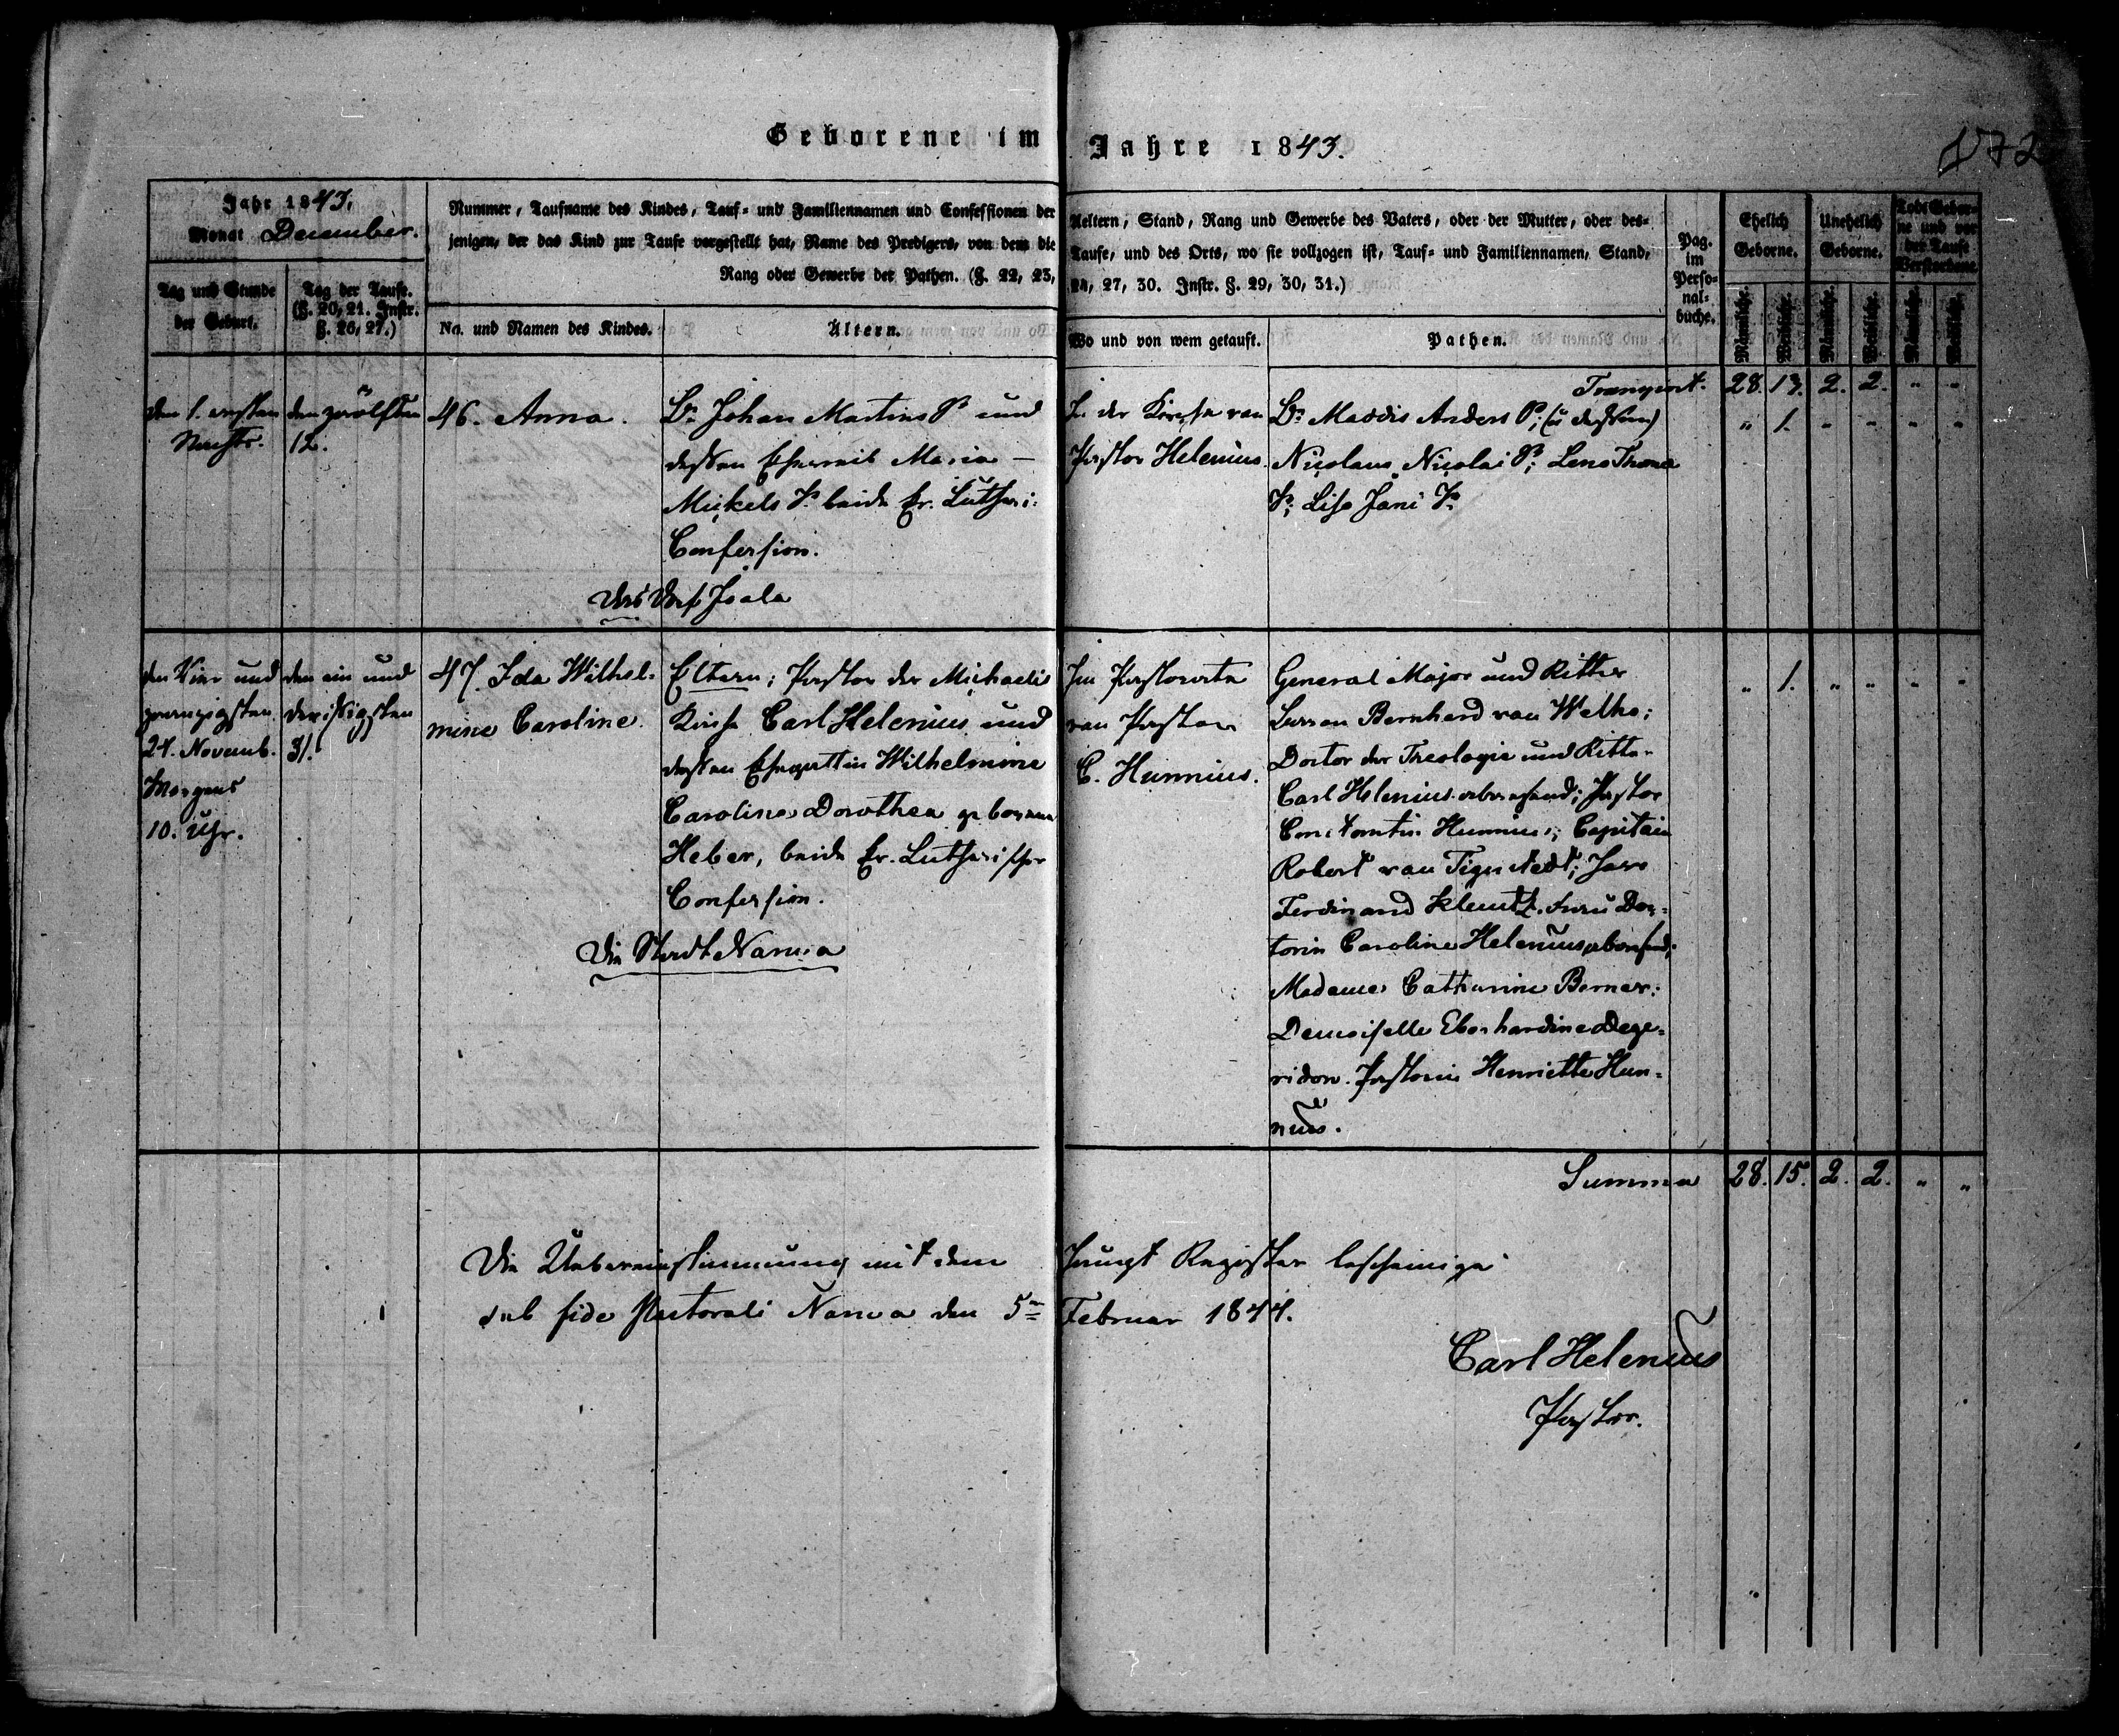 Geborene im Jahre 1843.
172
Jahr 1843.
Monat December.
Nummer, Taufname des Kindes, Tauf- und Familiennamen und Confessionen der Aeltern, Stand, Rang und Gewerbe des Vaters, oder der Mutter, oder des-
jenigen, der das Kind zur Taufe vorgestellt hat, Name des Predigers, von dem die Taufe, und des Orts, wo sie vollzogen ist, Tauf- und Familiennamen, Stand,
Rang oder Gewerbe der Pathen. (§. 22, 23, 24, 27, 30. Instr. §. 29, 30, 31.)
Tag und Stunde
der Geburt.
Tag der Taufe.
(§. 20, 21. Instr.
§. 26, 27.)
No. und Namen des Kindes.
Ältern.
Wo und von wem getauft.
Pathen.
Pag.
im
Perso-
nal-
buche.
Ehelich
Geborne.
Unehelich
Geborne.
Todt Gebor-
ne und vor
der Taufe
Verstorbene
Männliche.
Weibliche.
Männliche.
Weibliche.
Männliche.
Weibliche.
Transport. 28. 13. 2. 2. " "
den 1. ersten
Nachts.
den zwölften
12.
46. Anna.
Br. Johan Martins S. und
dessen Eheweib Maria
Mickels T. beide Ev. Lutheri:
Confession.
Das Dorf Joala
In der Kirche von
Pastor Helenius.
Br. Maddis Anders S;
Nicolaus Nicolai S; Leno Thoma
T; Liso Jani T.
" 1. " " " "
den Vier und
zwanzigsten
24. Novemb.
Morgens
10. Uhr.
den ein und
dreißigsten
31.
47. Ida Wilhel-
mine Caroline.
Eltern; Pastor der Michaelis
Kirche Carl Helenius und
dessen Ehegattin Wilhelmine
Caroline Dorothea geborene
Heber, beide Ev. Lutherischer
Confession.
Die Stadt Narva
Im Pastorate
von Pastor
C. Hunnius.
General Major und Ritter
Bernhard von Welho;
Doctor der Theologie und Ritter
Carl Helenius abwesend; Pastor
Constantin Hunnius; Capitain
Robert von Tigerstedt; Herr
Ferdinand Klentz. Frau Doc-
torin Caroline Helenius abwesend;
Madame Catharine Berner;
Demoiselle Eberhardine Dege-
ridon. Pastorin Henriette Hun-
nius.
" 1. " " " "
Summa 28. 15. 2. 2. " "
Die Uebereinstimmung mit dem Haupt Register bescheinige
sub fide pastorali Narva den 5ten Februar 1844.
Carl Helenius
Pastor.